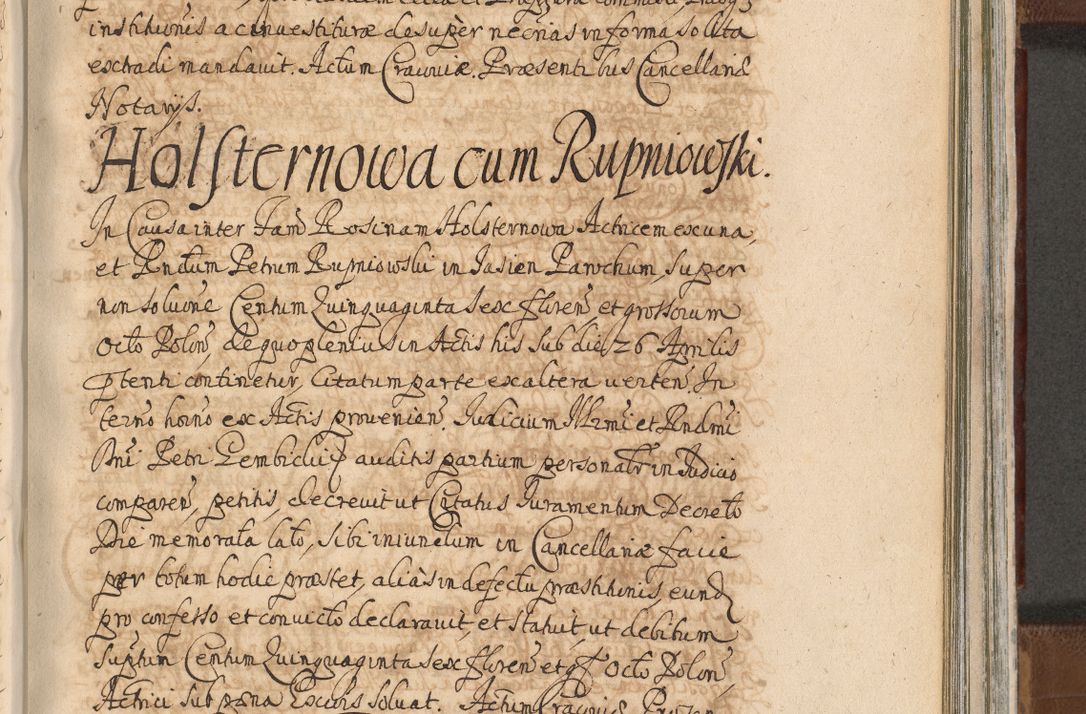 institutionis ac investituræ desuper necrias in forma solita
extradi mandavit. Actum Cracoviæ. Præsentibus Cancellariæ
Notarijs.
Holsternowa cum Rupniowski.
In Causa inter Fam̃ Rosinam Holsternowa Actricem ex una,
et Rndum Petrum Rupniowski in Jasien Parochum, super
non solutione Centum Quinquaginta Sex floren̄ et grossorum
Octo Polon̄, de quo plenius in Actis his sub die 26 Aprilis
ptenti continetur, Citatum parte ex altera verten̄ In
termō hornō ex Actis provenien̄. Judicium Illrmi et Rndmi
Dni Petri Gembicki auditis partium personalr in Judicio
comparen̄, petitis, decrevit ut Citatus Juramentum Decreto
Die memorata lato, sibi iniunctum in Cancellariæ facie
per totum hodie præstet, alias in defectu præstitionis, eund
pro confesso et convicto declaravit, et statuit, ut debitum
suptum Centum Quinquaginta Sex floren̄ et gr Octo Polon̄
Actrici sub pæna Excōis solvat. Actum Cracoviæ Præsen